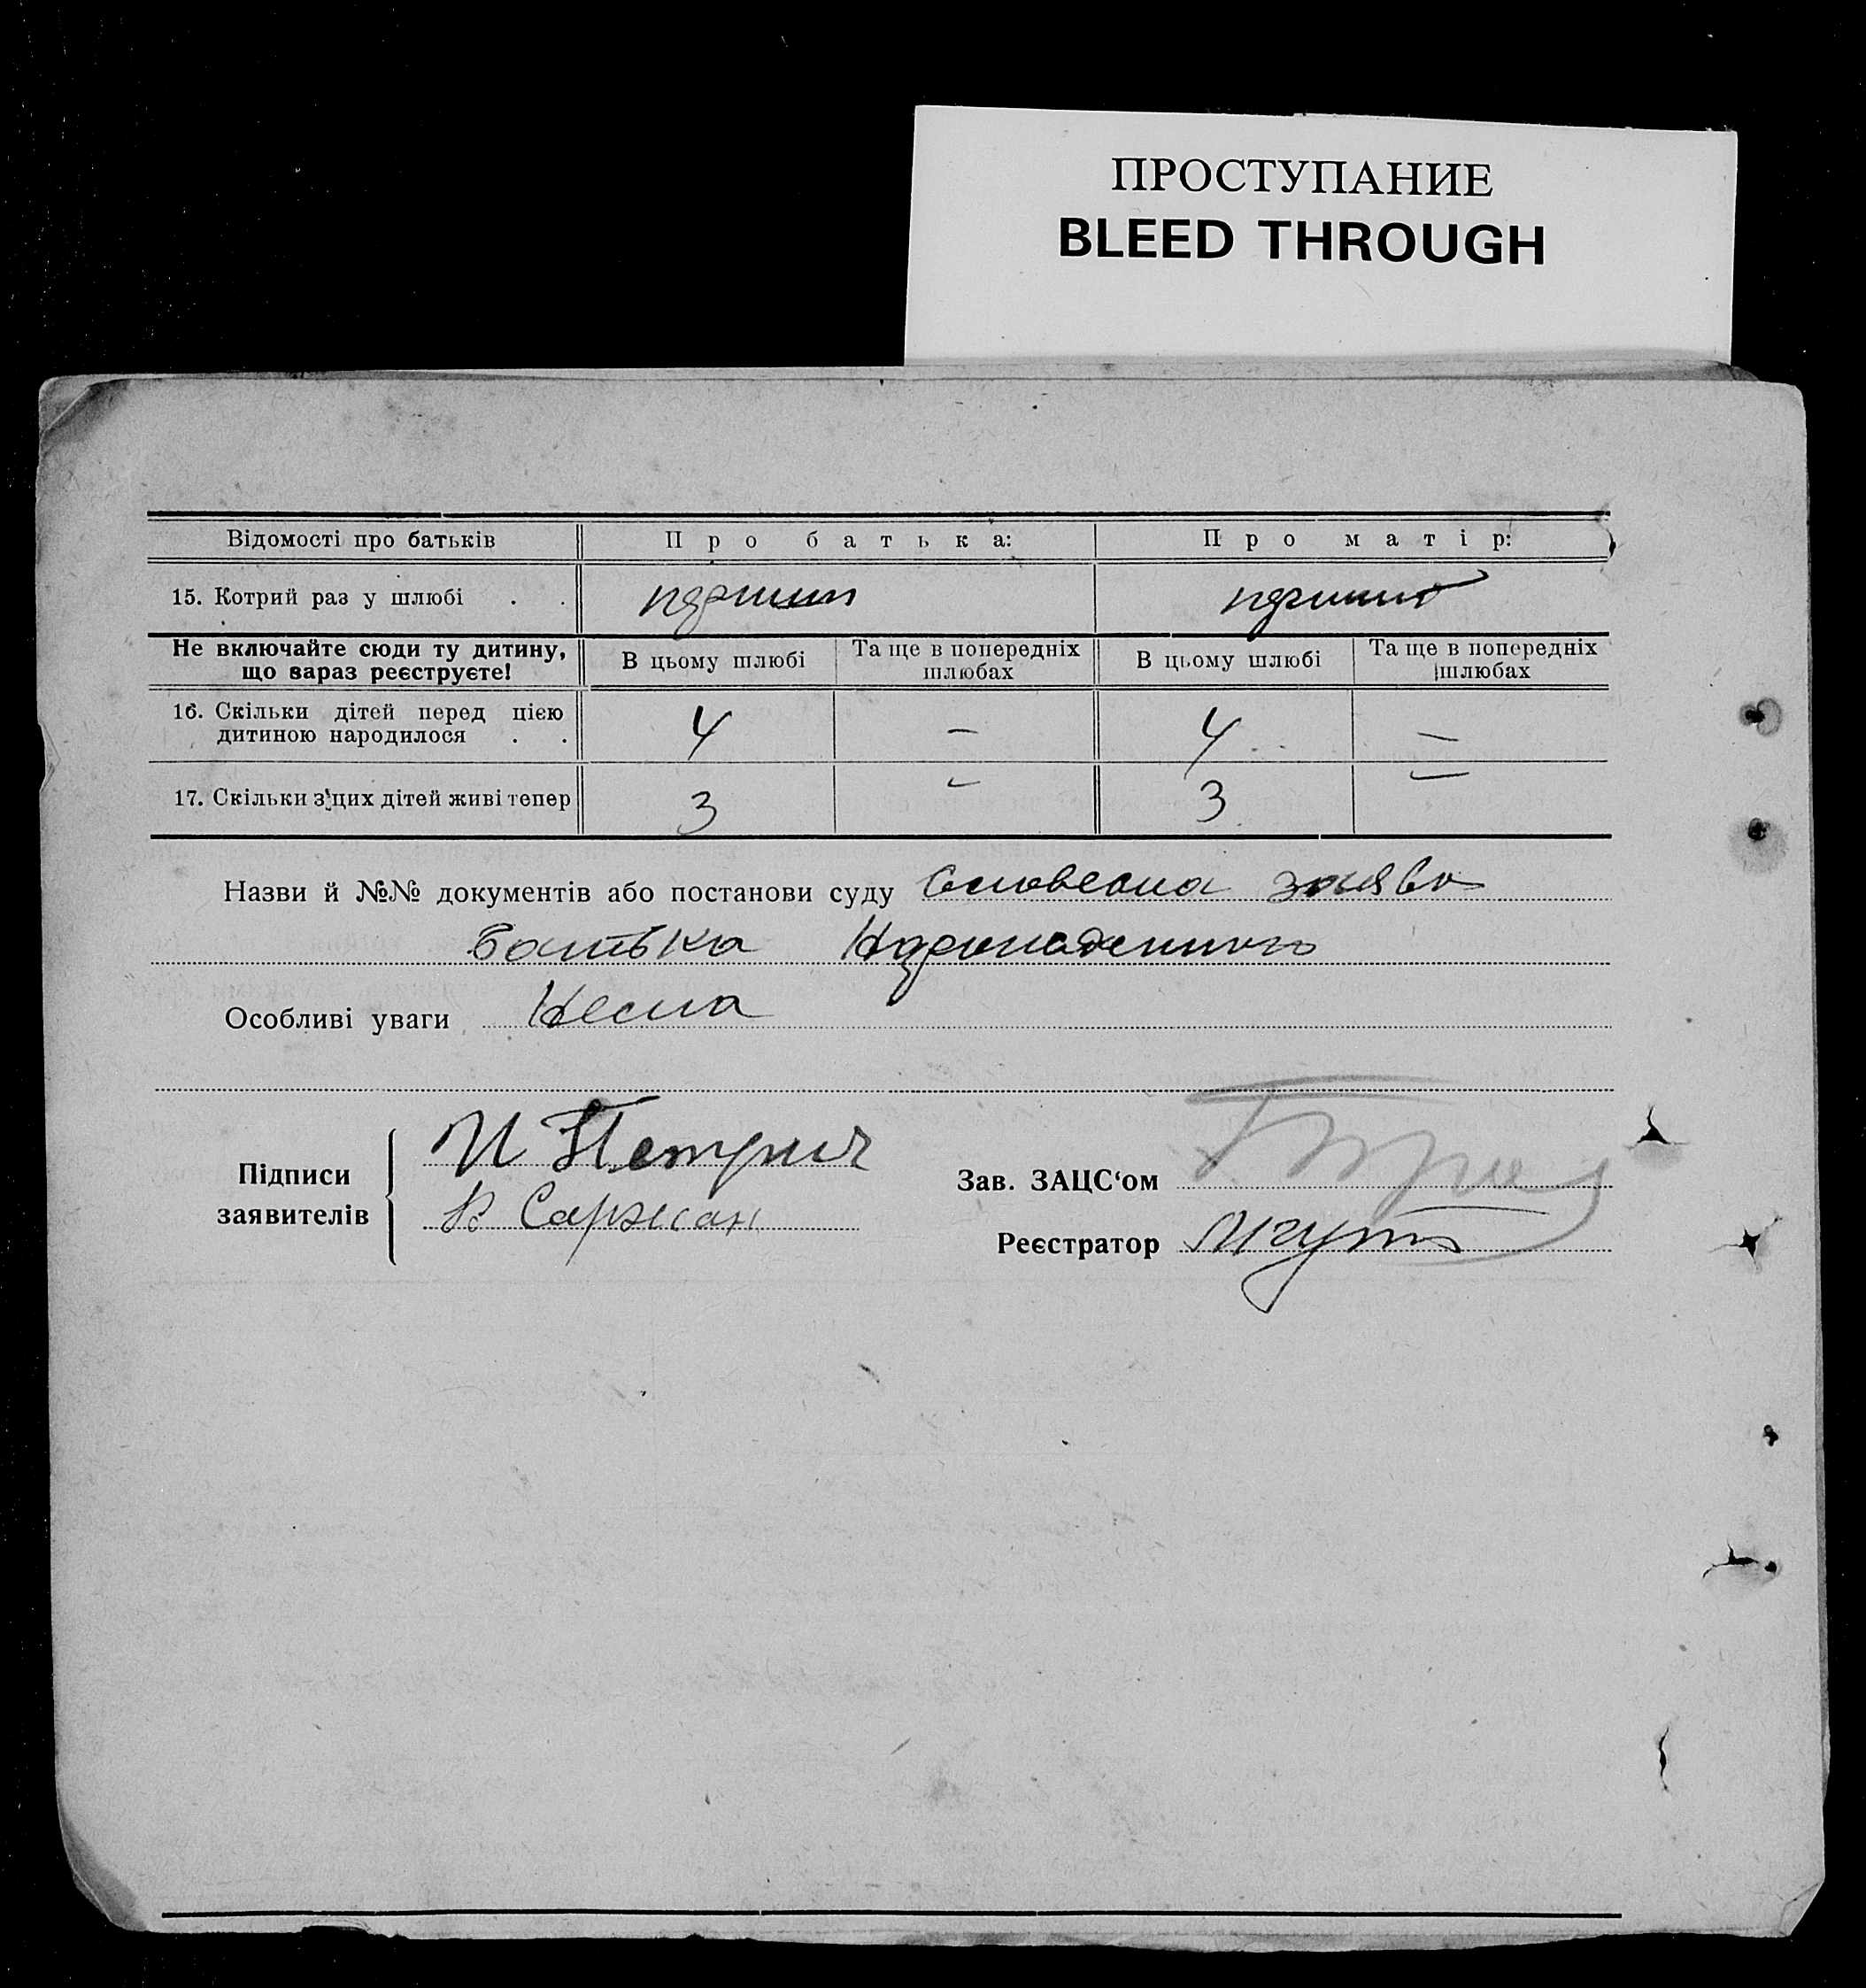 ПРОСТУПАНИЕ
BLEED THROUGH
Відомості про батьків Про батька: Про матір:
15. Котрий раз у шлюбі . .
Не включайте сюди ту дитину, що зараз реєструєте! В цьому шлюбі Та ще в попередніх шлюбах В цьому шлюбі Та ще в попередніх шлюбах
16. Скільки дітей перед цією дитиною народилося . . 4 — 4 —
17. Скільки з'цих дітей живі тепер 3 – 3 —
Назви й №№ документів або постанови суду Словесна заява
батька
Особливі уваги Нема
Підписи заявителів
И Петрич
В Саржан
Зав. ЗАЦС'ом
Реєстратор